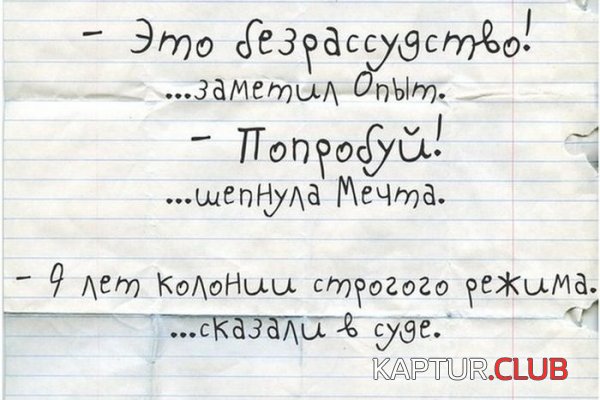 - Это безрассудство!
...заметил Опыт.
- Попробуй!
...шепнула Мечта.
- 9 лет колонии строгого режима.
...сказали в суде.
KAPTUR.CLUB